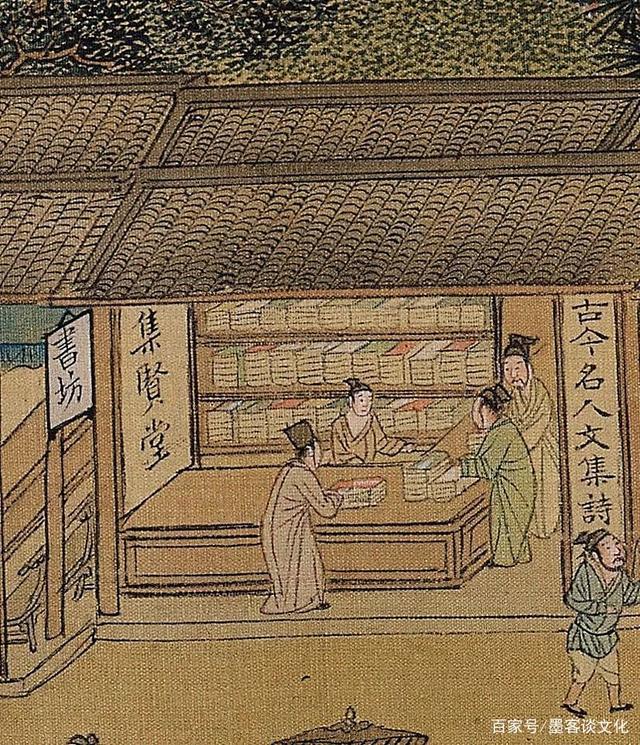 書坊
集賢堂
古今名人文集詩
百家号/墨客谈文化